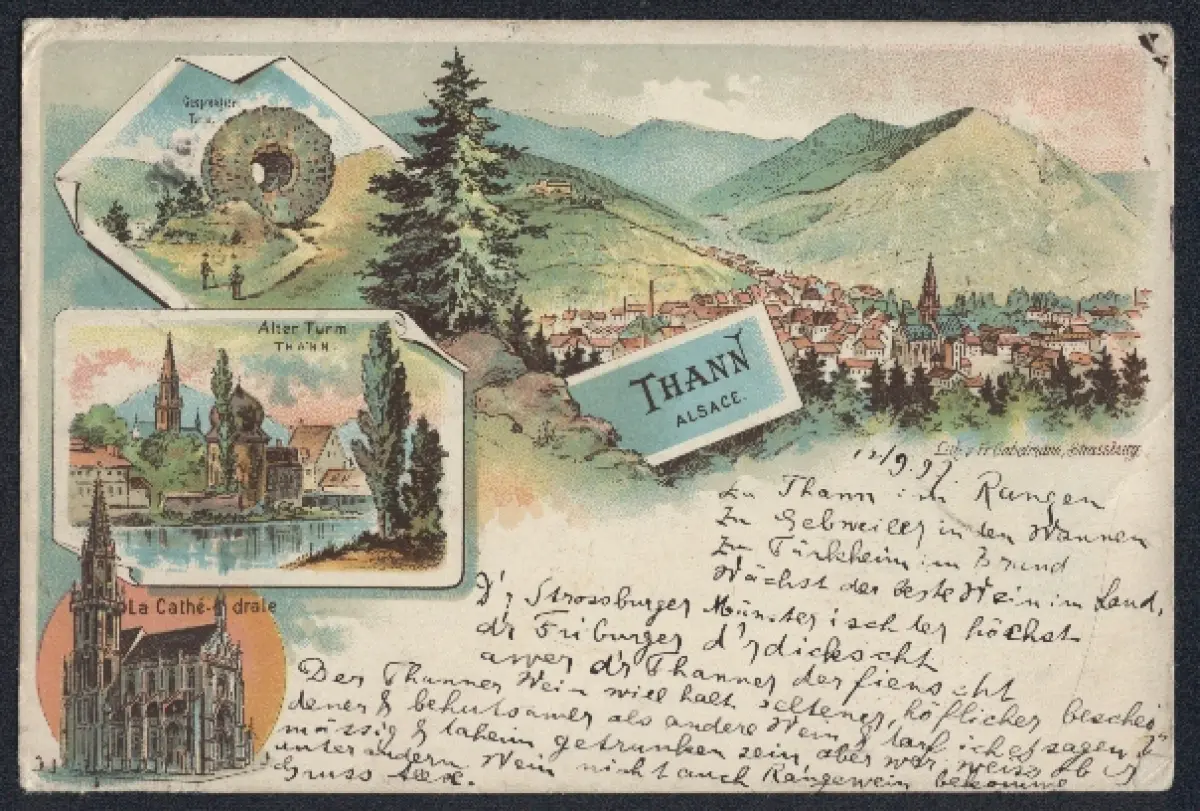 Gesprengter
Alter Turm
THANN.
La Cathé-drale
THANN
ALSACE.
Strassburg
12/9.97
Zu Thann im Rangen
Zu Gebweiler in den Wannen
Zu Türkheim im Brand
Wächst der beste Wein im Land,
D'r Strossburger Münster isch der höchst
d'r Friburger d'r dickscht
awer d'r Thanner der fienscht
Der Thanner Wein will halt seltener, höflicher beschei-
dener & behutsamer als andere Wein & darf ich es sagen,
mässig & daheim getrunken sein aber wer weiss ob
unter andern Wein nicht auch Rangewein bekomme
Gruss